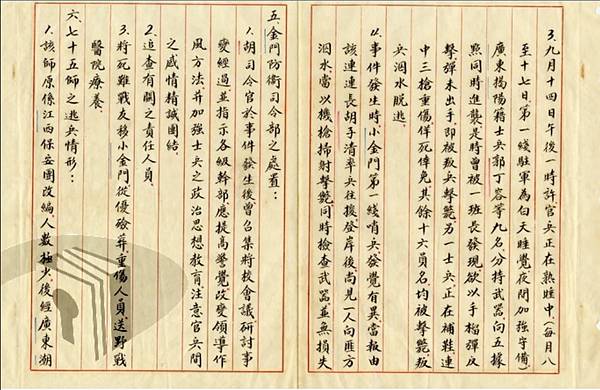 3.九月十四日午後一時許官兵正在熟睡中（每月八
至十七日、第一綫駐軍為白天睡覺夜間加強守備）
廣東揭陽籍士兵郭丁容等九名、分持武器向五據
點同時進襲、是時曾被一班長發現、欲以手榴彈反
擊、彈未出手、即被叛兵擊斃、另一士兵正在補鞋、連
中三槍重傷佯死倖免、其餘十六員名、均被擊斃、叛
兵泅水脫逃、
4.事件發生時、小金門第一綫哨兵發覺有異、當報由
該連連長胡子清率兵往援、登岸後、尚見一人向匪方
泅水、當以機槍掃射擊斃、同時檢查武器並無損失
五、金門防衛司令部之處置：
1.胡司令官於事件發生後、曾召集將校會議研討事
變經過、並指示各級幹部、應提高警覺、改變領導作
風方法、并加強士兵之政治思想教育、注意官兵間
之感情、精誠團結、
2.追查有關之責任人員、
3.將死難戰友移小金門從優殮葬、重傷人員、送野戰
醫院療養、
六、七十五師之逃兵情形：
1.該師原係江西保安團改編、人數極少、後經廣東湖